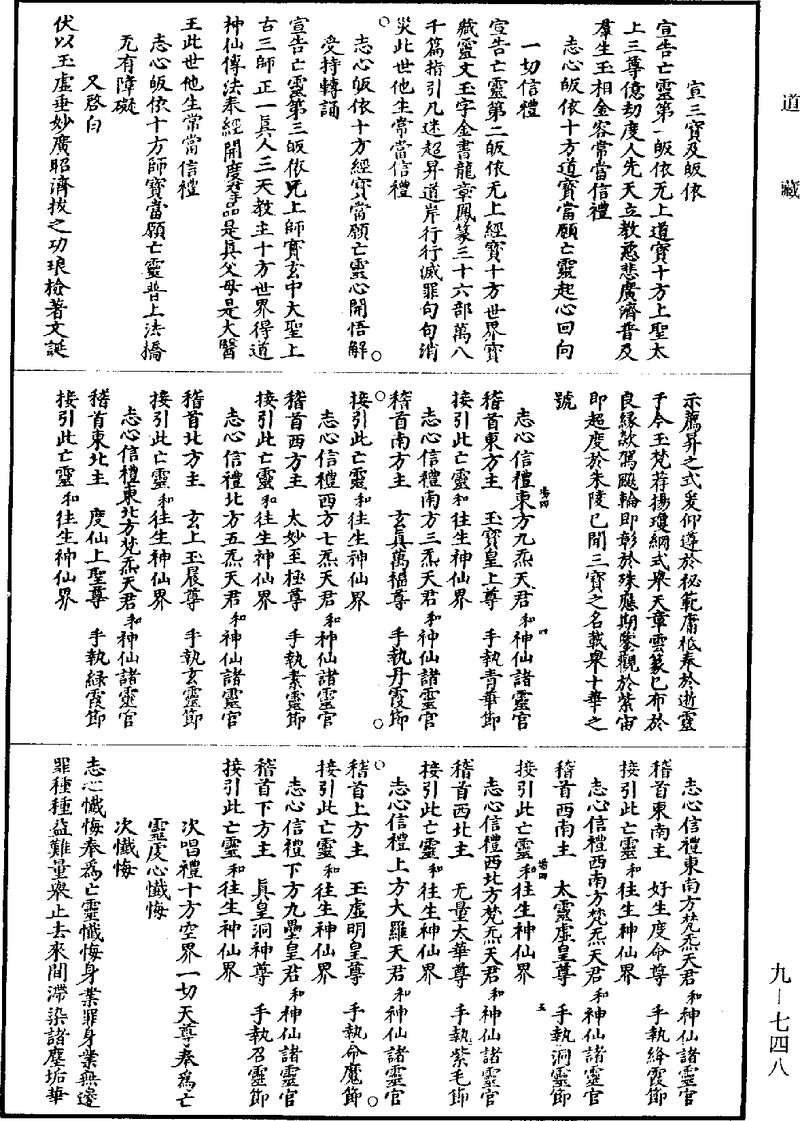 道藏
宣三寶及皈依
宣告亡靈第一皈依无上道寶十方上聖太
上三尊億劫度人先天立教慈悲廣濟普及
羣生玉相金容常當信禮
志心皈依十方道寶當願亡靈起心回向
一切信禮
宣告亡靈第二皈依无上經寶十方世界寶
藏靈文玉字金書龍章鳳篆三十六部萬八
千篇指引凡迷超昇道岸行行滅罪句句消
災此世他生常當信禮
志心皈依十方經寶當願亡靈心開悟解
受持轉誦
宣告亡靈第三皈依无上師寶玄中大聖上
古三師正一真人三天教主十方世界得道
神仙傳法奉經開度羣品是真父母是大醫
王此世他生常當信禮
志心皈依十方師寶當願亡靈普上法橋
无有障礙
又啓白
伏以玉虛垂妙廣昭濟拔之功琅檢著文誕
示薦昇之式爰仰遵於秘範庸柢奉於逝靈
于今玉梵荐揚瓊綱式舉天章雲篆已布於
良緣歘駕飈輪即彰於殊應期鑒觀於紫宙
即超度於朱陵已聞三寶之名載舉十華之
號
志心信禮東方九炁天君和神仙諸靈官
稽首東方主 玉寶皇上尊 手執青華節
接引此亡靈和往生神仙界
志心信禮南方三炁天君和神仙諸靈官
稽首南方主 玄真萬福尊 手執丹霞節
接引此亡靈和往生神仙界
志心信禮西方七炁天君和神仙諸靈官
稽首西方主 太妙至極尊 手執素靈節
接引此亡靈和往生神仙界
志心信禮北方五炁天君和神仙諸靈官
稽首北方主 玄上玉晨尊 手執玄靈節
接引此亡靈和往生神仙界
志心信禮東北方梵炁天君和神仙諸靈官
稽首東北主 度仙上聖尊 手執綠霞節
接引此亡靈和往生神仙界
志心信禮東南方梵炁天君和神仙諸靈官
稽首東南主 好生度命尊 手執絳霞節
接引此亡靈和往生神仙界
志心信禮西南方梵炁天君和神仙諸靈官
稽首西南主 太靈虛皇尊 手執洞靈節
接引此亡靈和往生神仙界
志心信禮西北方梵炁天君和神仙諸靈官
稽首西北主 无量太華尊 手執紫毛節
接引此亡靈和往生神仙界
志心信禮上方大羅天君和神仙諸靈官
稽首上方主 玉虛明皇尊 手執命魔節
接引此亡靈和往生神仙界
志心信禮下方九壘皇君和神仙諸靈官
稽首下方主 真皇洞神尊 手執召靈節
接引此亡靈和往生神仙界
次唱禮十方空界一切天尊奉爲亡
靈虔心懺悔
次懺悔
志心懺悔奉爲亡靈懺悔身業罪身業無邊
罪種種益難量舉止去來間滯染諸塵垢華
九—七四八